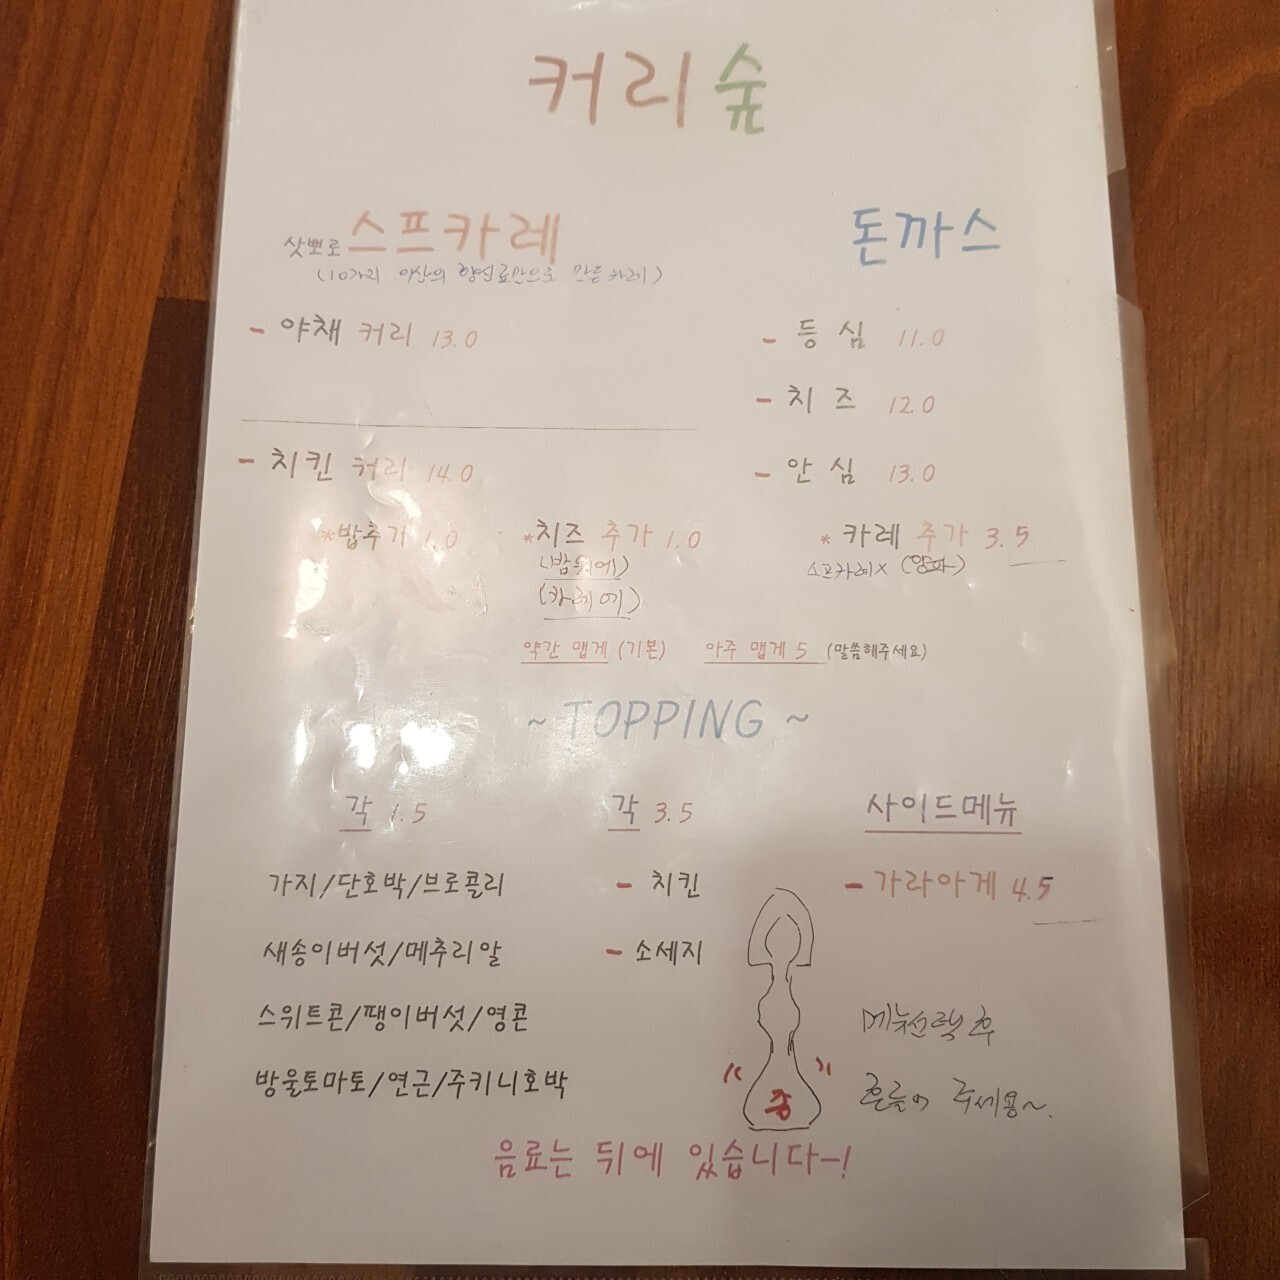 커리숲
삿뽀로 스프카레
(10가지 이상의 향신료만으로 만든 카레)
- 야채 커리 13.0
- 치킨 커리 14.0
돈까스
- 등심 11.0
- 치즈 12.0
- 안심 13.0
*밥추가 1.0
*치즈 추가 1.0
(밥위에)
(카레에)
* 카레 추가 3.5
스프카레X (양파)
약간 맵게 (기본) 아주 맵게 5 (말씀해주세요)
~ TOPPING ~
각 1.5
가지/단호박/브로콜리
새송이버섯/메추리알
스위트콘/팽이버섯/영콘
방울토마토/연근/주키니호박
각 3.5
- 치킨
- 소세지
사이드메뉴
- 가라아게 4.5
종
메뉴선택 후
흔들어 주세용~.
음료는 뒤에 있습니다~!